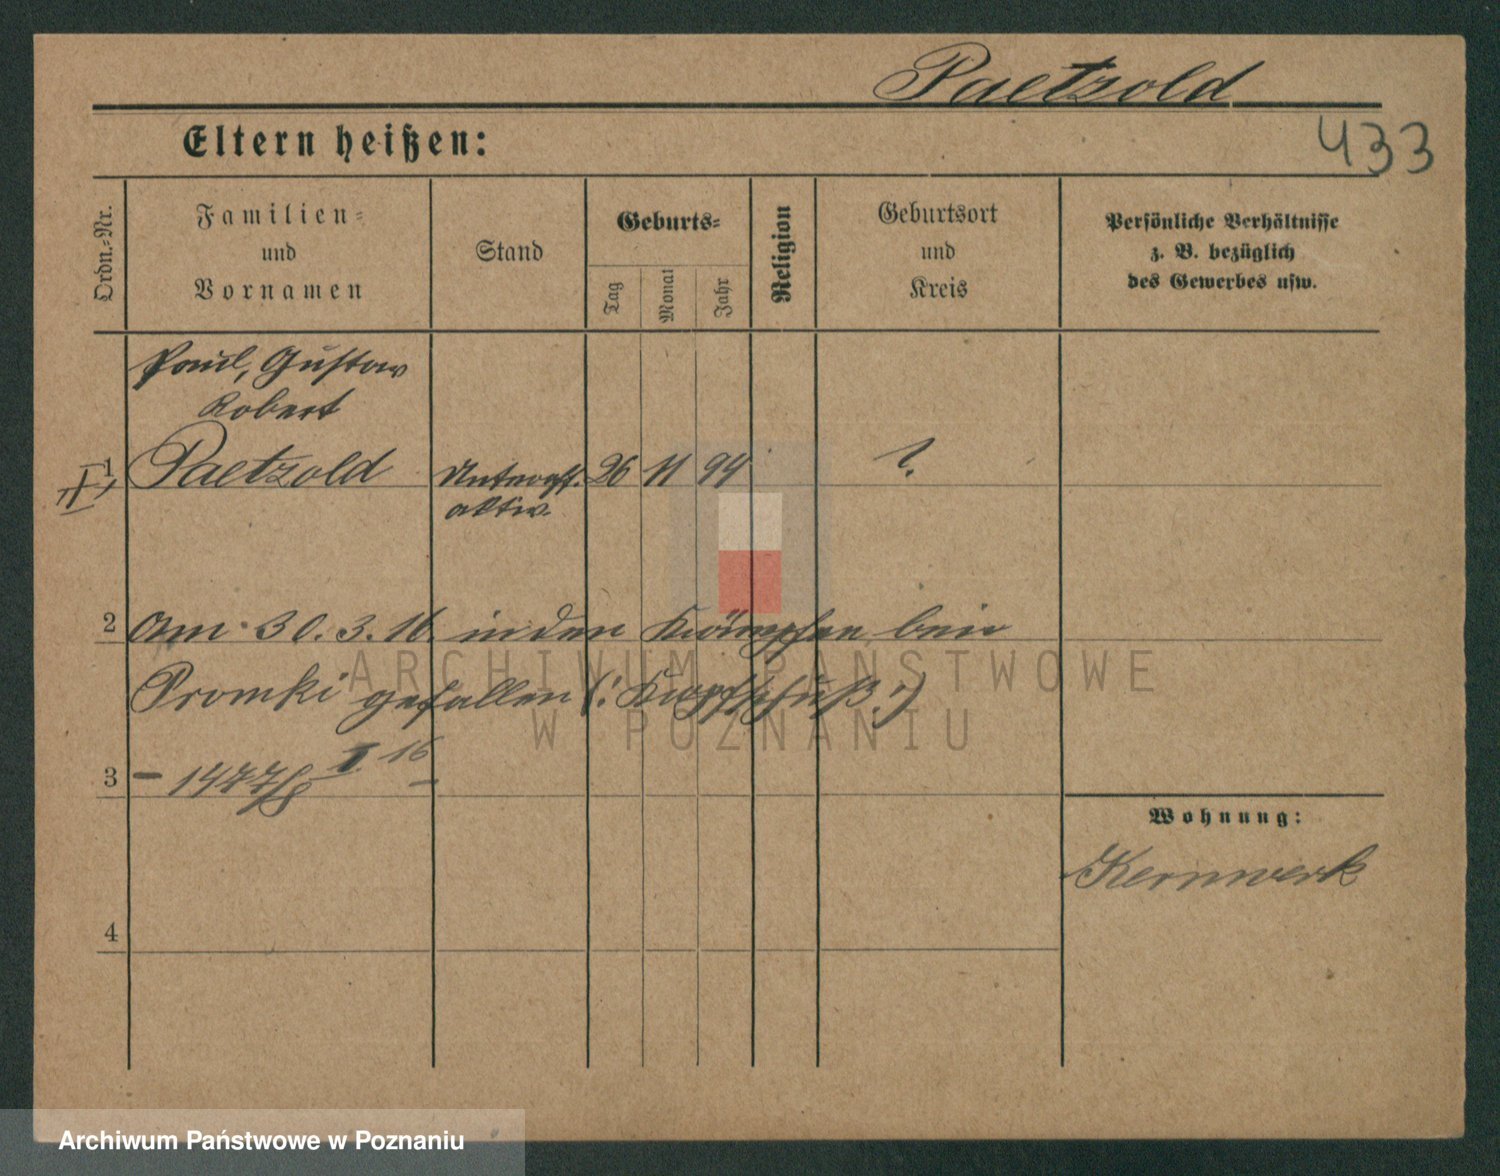 Paetzold
433
Eltern heißen:
Ordn.-Nr.
Familien-
und
Vornamen
Stand
Geburts-
Tag
Monat
Jahr
Religion
Geburtsort
und
Kreis
Persönliche Verhältnisse
z. B. bezüglich
des Gewerbes usw.
Paul, Gustav
Robert
1 Paetzold Unteroff. 26 11 94 ?
aktiv.
2 Am 30. 3. 16 in den Kämpfen bei
Promki gefallen (: Kopfschuß :)
3 - 1477/8 II 16 -
Wohnung:
Kernwerk
4
ARCHIWUM PAŃSTWOWE
W POZNANIU
Archiwum Państwowe w Poznaniu